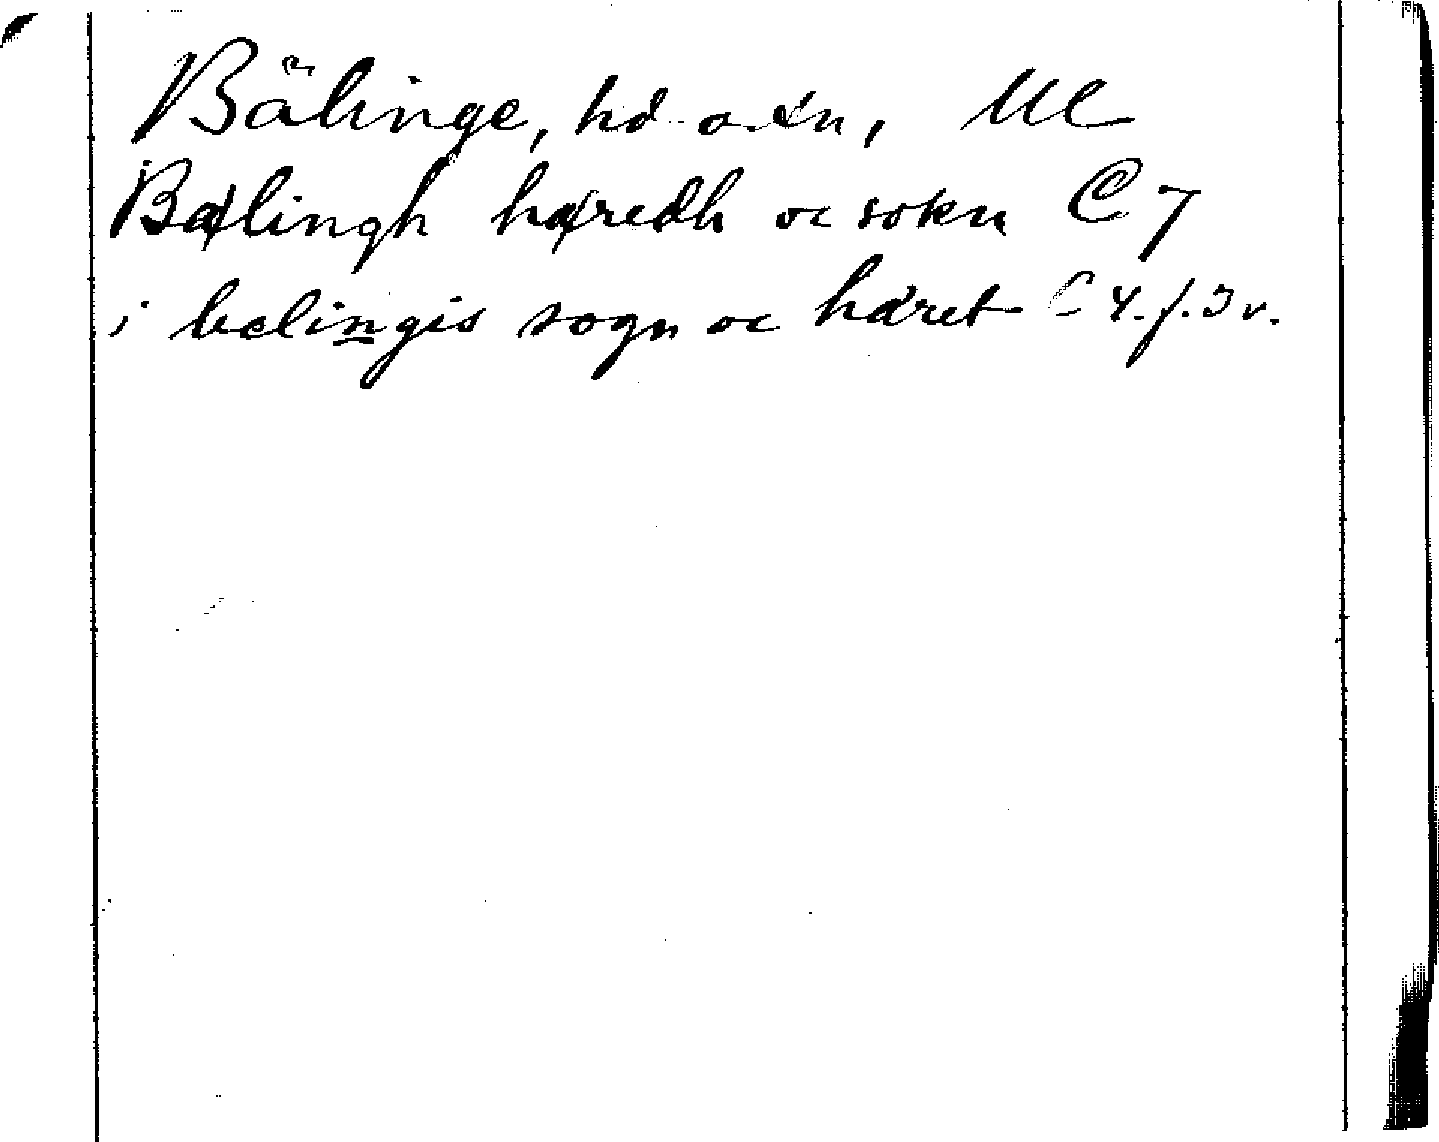 Bälinge, hd o. sn, Ul
Bælingh hæredh oc sokn C 7
i belingis sogn oc häret C 4. f. 3 v.